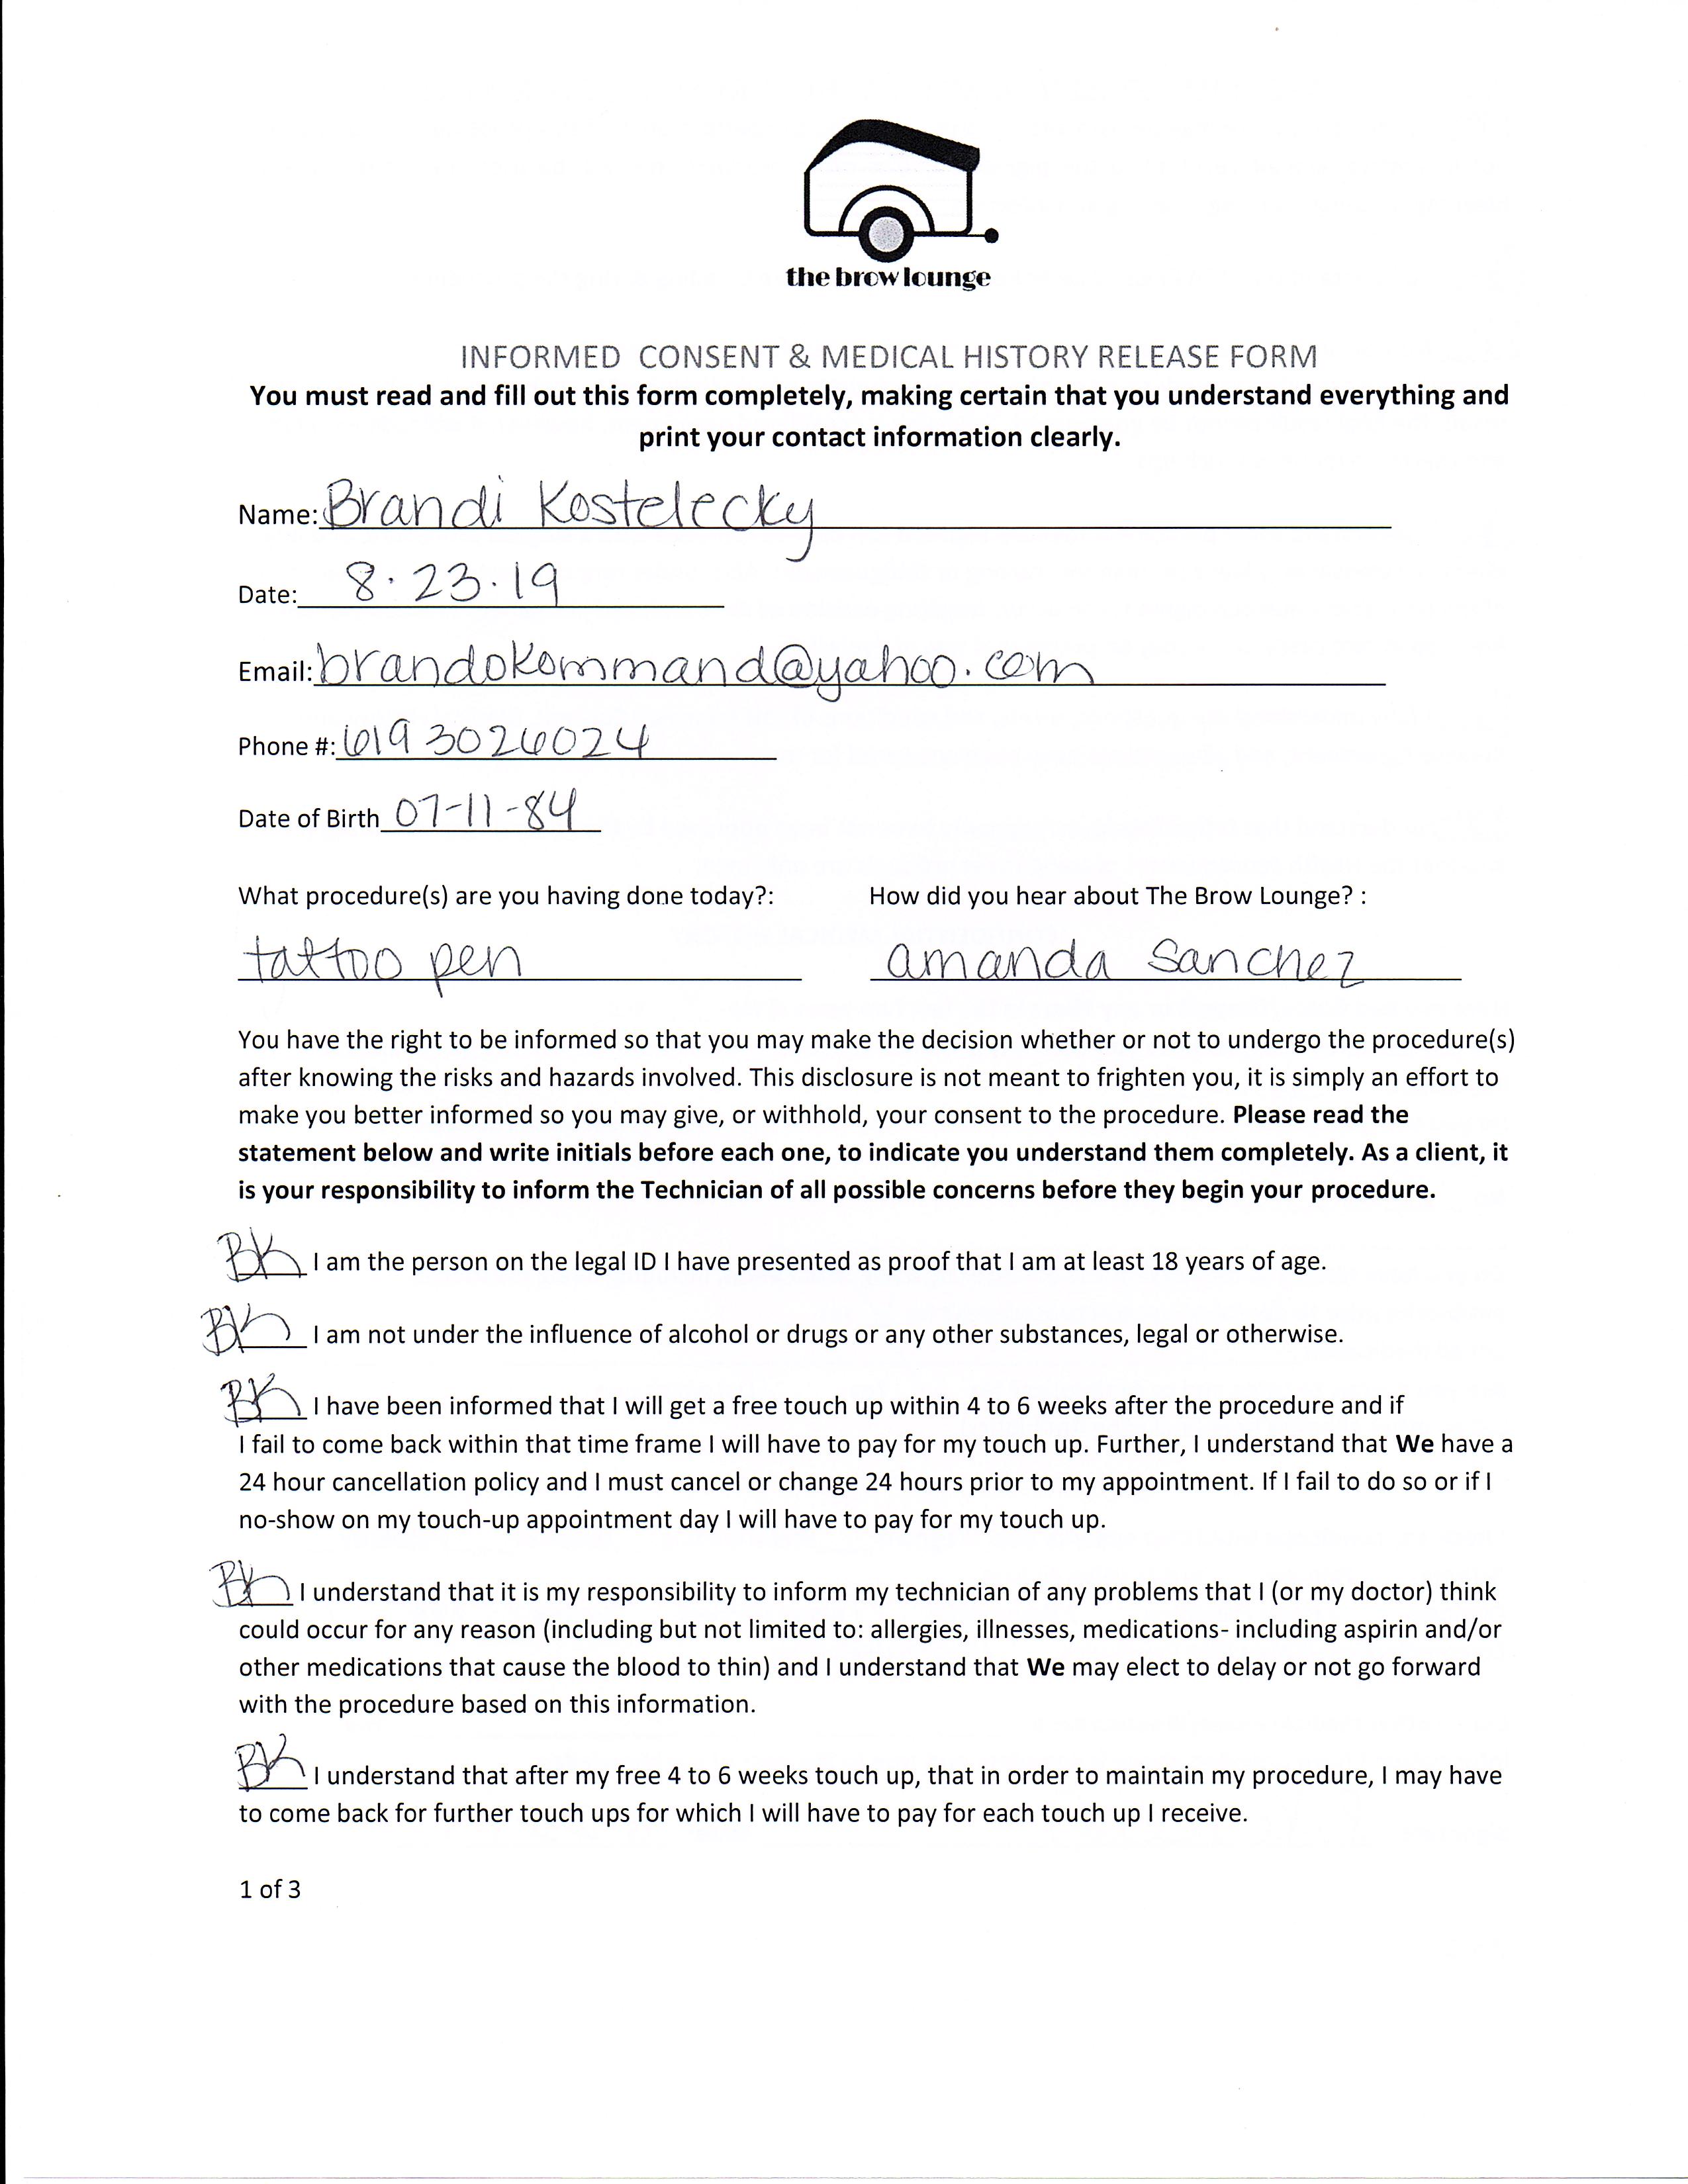 the brow lounge
INFORMED CONSENT & MEDICAL HISTORY RELEASE FORM
You must read and fill out this form completely, making certain that you understand everything and
print your contact information clearly.
Name: Brandi Kostelecky
Date: 8.23.19
Email: brandokommand@yahoo.com
Phone #: 619 3026024
Date of Birth 07-11-84
What procedure(s) are you having done today?: How did you hear about The Brow Lounge? :
tattoo pen amanda sanchez
You have the right to be informed so that you may make the decision whether or not to undergo the procedure(s)
after knowing the risks and hazards involved. This disclosure is not meant to frighten you, it is simply an effort to
make you better informed so you may give, or withhold, your consent to the procedure. Please read the
statement below and write initials before each one, to indicate you understand them completely. As a client, it
is your responsibility to inform the Technician of all possible concerns before they begin your procedure.
BK I am the person on the legal ID I have presented as proof that I am at least 18 years of age.
BK I am not under the influence of alcohol or drugs or any other substances, legal or otherwise.
BK I have been informed that I will get a free touch up within 4 to 6 weeks after the procedure and if
I fail to come back within that time frame I will have to pay for my touch up. Further, I understand that We have a
24 hour cancellation policy and I must cancel or change 24 hours prior to my appointment. If I fail to do so or if I
no-show on my touch-up appointment day I will have to pay for my touch up.
BK I understand that it is my responsibility to inform my technician of any problems that I (or my doctor) think
could occur for any reason (including but not limited to: allergies, illnesses, medications- including aspirin and/or
other medications that cause the blood to thin) and I understand that We may elect to delay or not go forward
with the procedure based on this information.
BK I understand that after my free 4 to 6 weeks touch up, that in order to maintain my procedure, I may have
to come back for further touch ups for which I will have to pay for each touch up I receive.
1 of 3